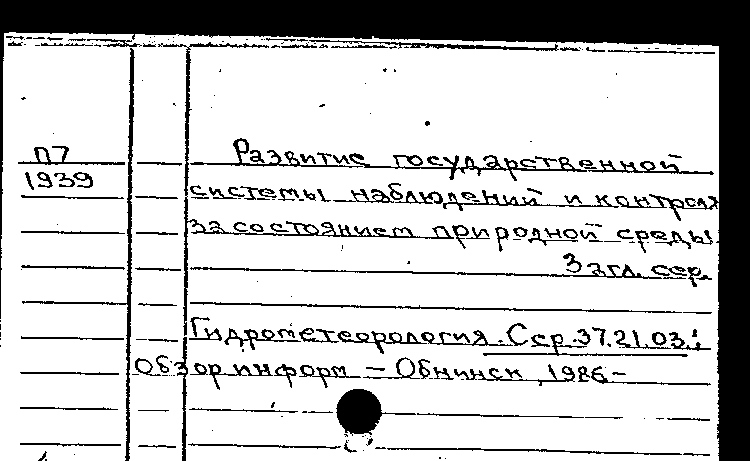 П7
1939
Развитие государственной
системы наблюдений и контроля
за состоянием природной среды.
Загл. сер.
Гидрометеорология. Сер. 37.21.03.:
Обзор информ – Обнинск, 1986–